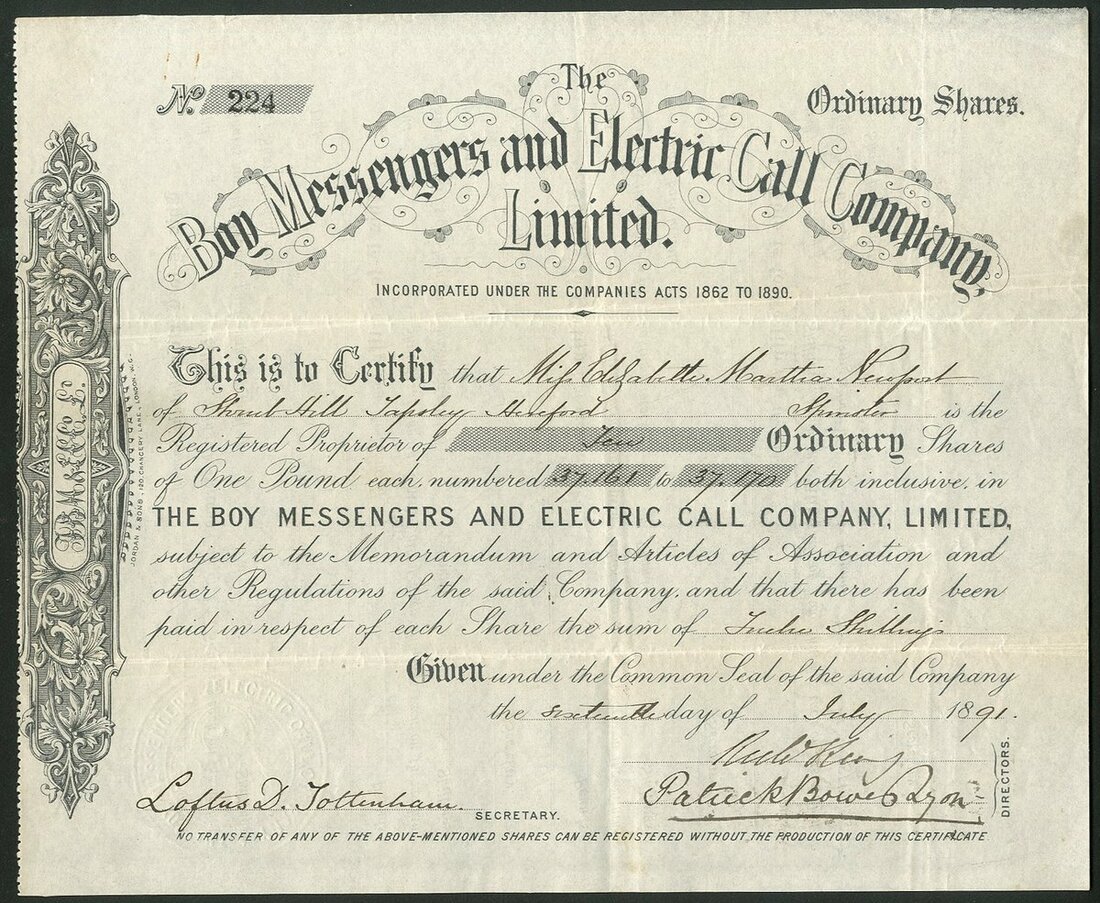 No 224
Ordinary Shares.
The
Boy Messengers and Electric Call Company,
Limited.
INCORPORATED UNDER THE COMPANIES ACTS 1862 TO 1890.
This is to Certify that Miss Elizabeth Martha Newport
of Shrub Hill Tapsley Hereford Spinster is the
Registered Proprietor of Ten Ordinary Shares
of One Pound each, numbered 37.161 to 37.170 both inclusive, in
THE BOY MESSENGERS AND ELECTRIC CALL COMPANY, LIMITED,
subject to the Memorandum and Articles of Association and
other Regulations of the said Company, and that there has been
paid in respect of each Share the sum of Twelve Shillings
Given under the Common Seal of the said Company
the sixteenth day of July 1891.
Patrick Bowes Lyon
DIRECTORS.
Loftus D. Tottenham.
SECRETARY.
NO TRANSFER OF ANY OF THE ABOVE-MENTIONED SHARES CAN BE REGISTERED WITHOUT THE PRODUCTION OF THIS CERTIFICATE
JORDAN & SONS, 120, CHANCERY LANE, LONDON, W.C.